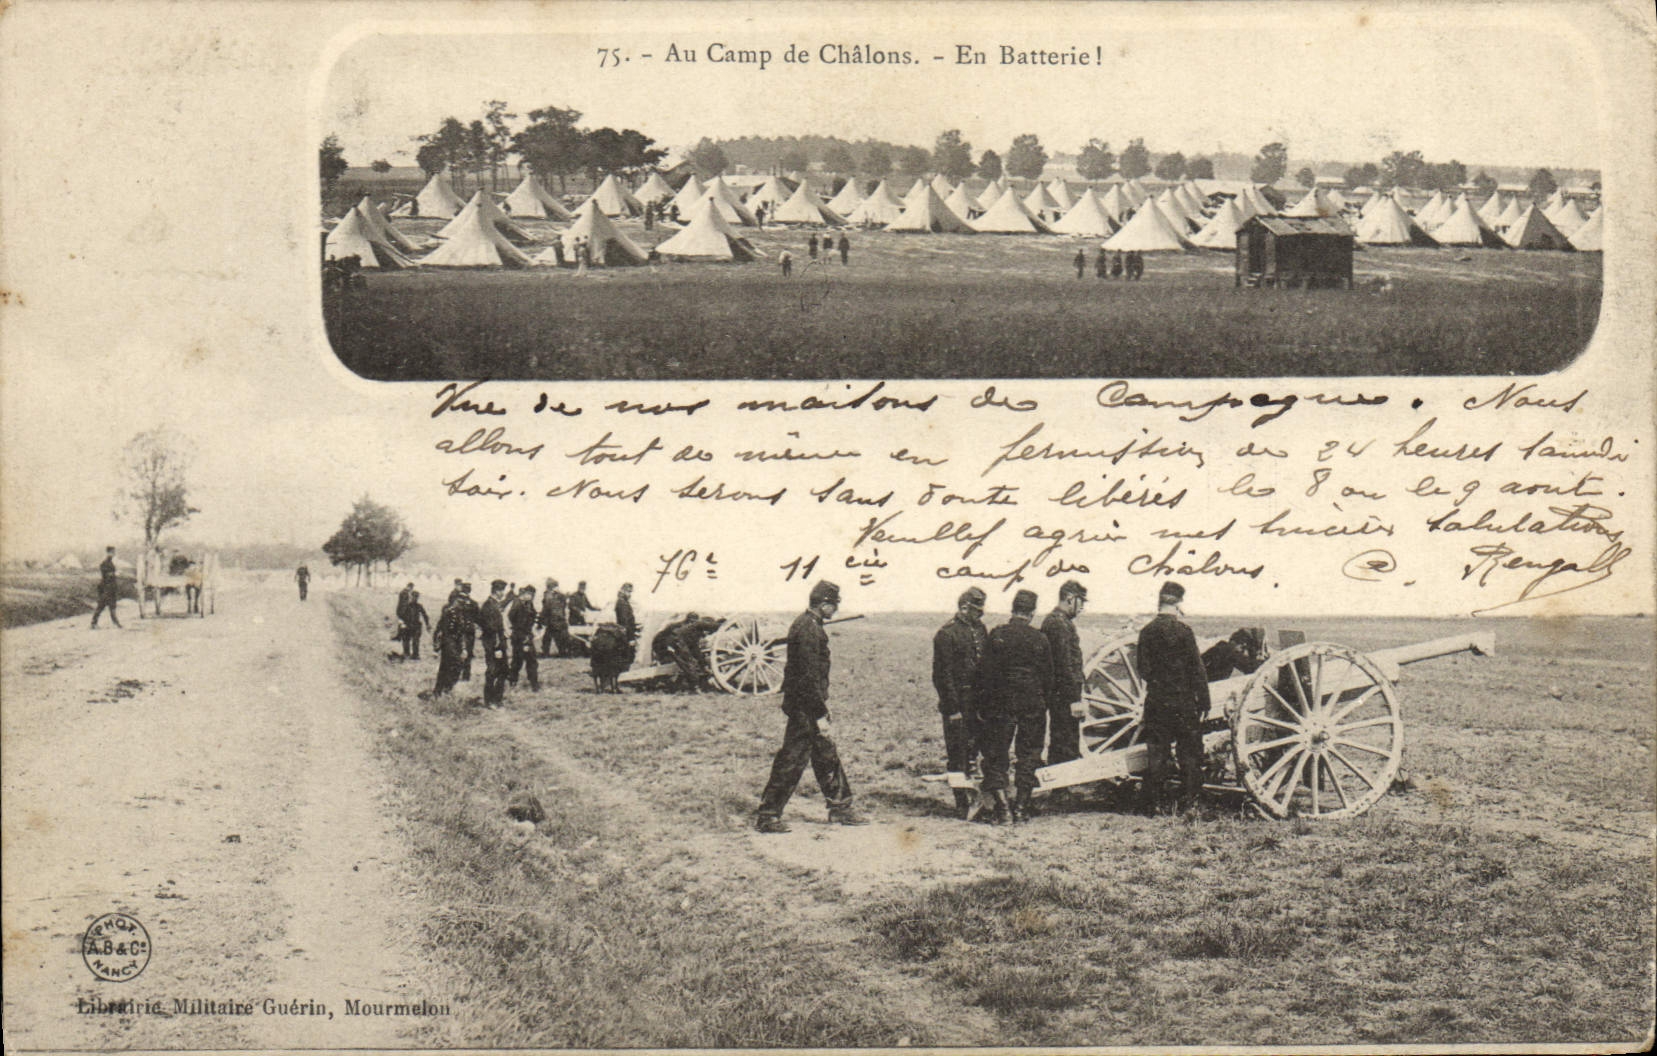 75. - Au Camp de Châlons. - En Batterie !
Vue de nos maisons de Campagne. Nous
allons tout de même en permission de 24 heures samedi
soir. Nous serons sans doute libérés le 8 ou le 9 aout.
Veuillez agréer mes sincères salutations
76e 11 cie camp de Châlons.
PHOT.
A.B & Cie
NANCY
Librairie Militaire Guérin, Mourmelon